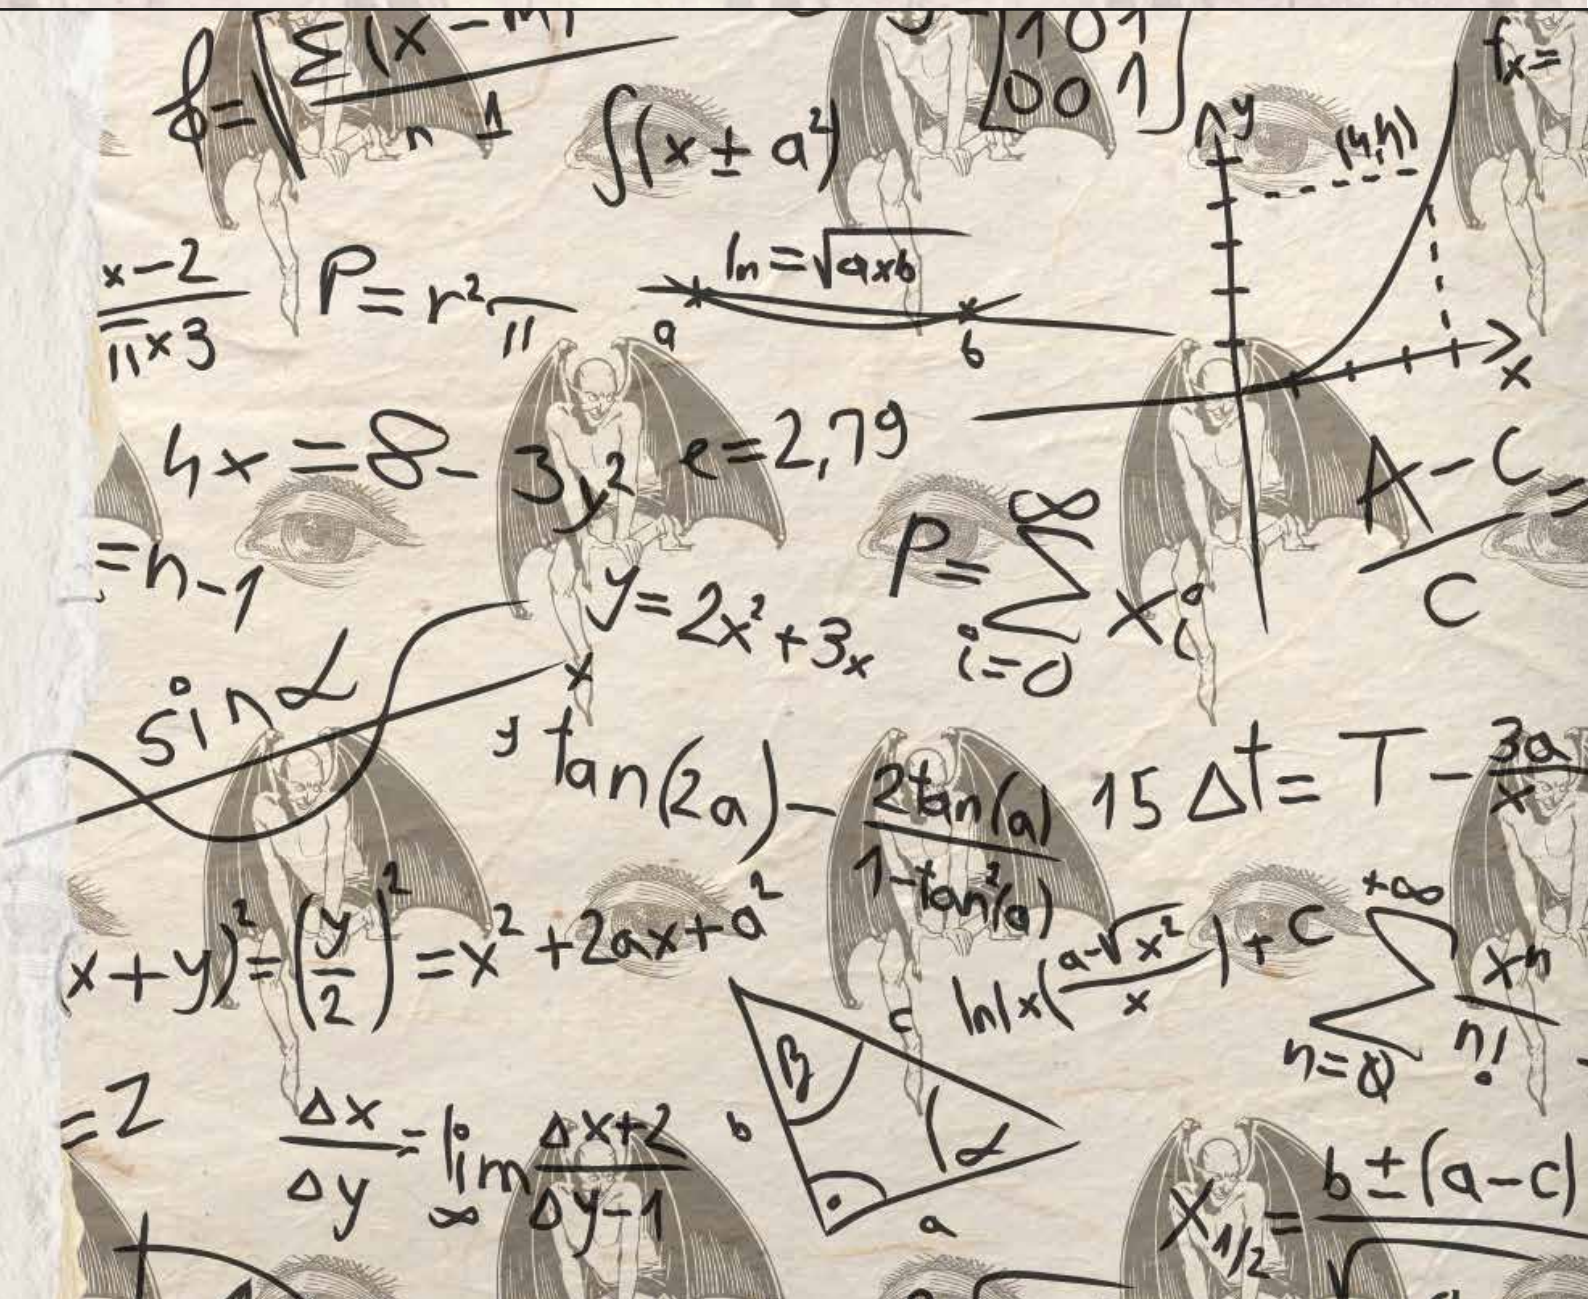 f = √ Σ(x-m) / n 1
∫(x ± a²)
101
001
y
(4,h)
fx=
x-2 / π×3
P = r²π
ln = √axb
a
b
x
4x = 8 - 3y²
e=2,79
A-C / C =
=n-1
y = 2x² + 3x
P = ∞ Σ i=0 xᵢ
sin α
x
y
tan(2a) - 2tan(a) / 1-tan²(a)
15 Δt = T - 3a / x
(x+y)² = (y/2)² = x² + 2ax + a²
ln|x(a-√x² / x)| + C
+∞ Σ n=0 xⁿ / n!
=2
Δx / Δy = lim ∞ Δx+2 / Δy-1
β
c
b
α
a
X1/2 = b ± (a-c) / √